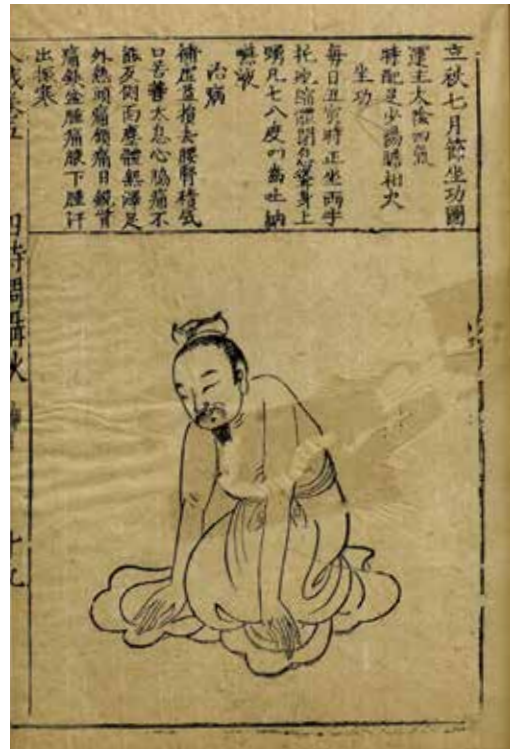 立秋七月節坐功圖
運主太陰四氣
時配足少陽膽相火
坐功
每日丑寅時正坐兩手
托地縮體閉息聳身上
踴凡七八度叩齒吐納
嚥液
治病
補虛益損去腰腎積氣
口苦善太息心脇痛不
能反側面塵體無澤足
外熱頭痛頷痛目銳眥
痛缺盆腫痛腋下腫汗
出振寒
四時調攝秋